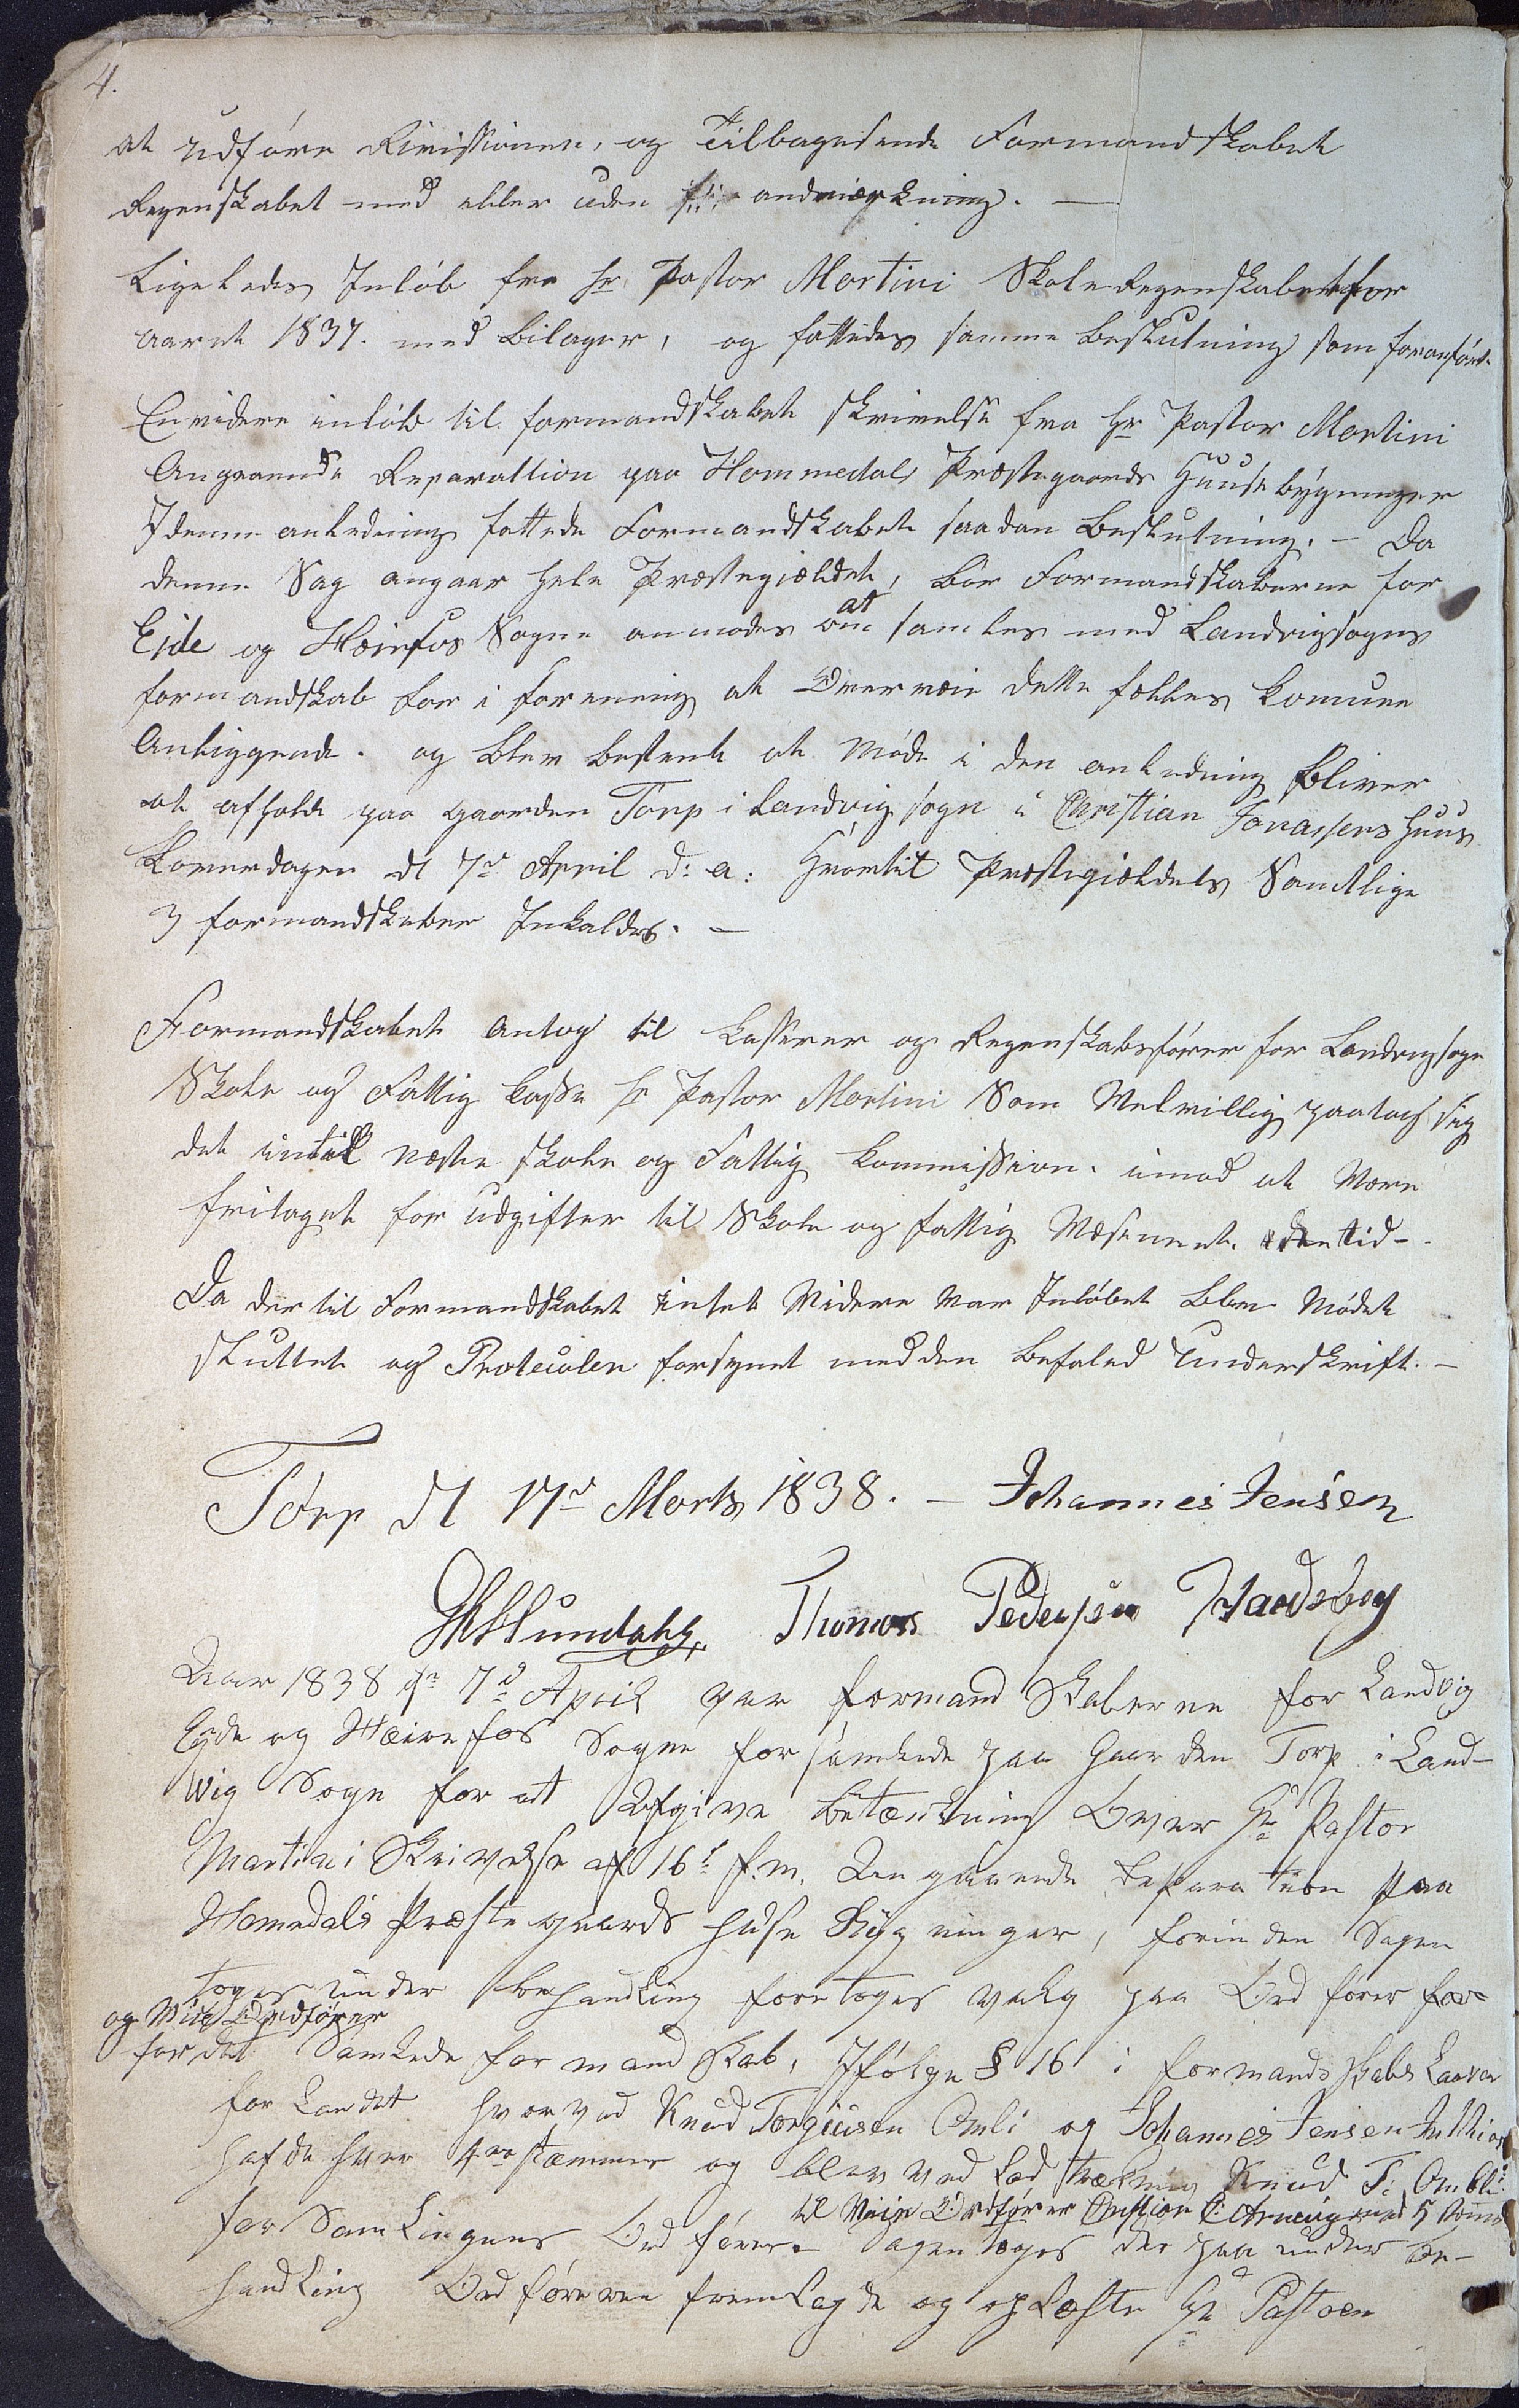 4.
at udføre Rivissionen, og Tilbagesende Formandskabet
Regenskabet med eller uden andmærkning. —
Ligeledes Inløb fra Hr Pastor Martini Skoleregenskabet for
aaret 1837. med bilager, og fattedes samme beslutning som foranført
Envidere inløb til formandskabet skrivelse fra Hr Pastor Martini
Angaaende Reparattion paa Hommedals Præstegaards Huusebygninger
I denne anledning fattede Formandskabet saadan Beslutning. — Da
denne Sag angaar hele Præstegjældet, bør Formandskaberne for
at
Eide og Hæirefos Sogne anmodes om samles med Landvigsogns
formandskab for i forening at Overveie dette fælles komune
Anliggende. og blev bestemt at Møde i den anledning bliver
at afholde paa gaarden Torp i Landvig sogn i Christian Jonassens Huus
Løverdagen d 7de April d: a: Hvortil Præstegjældets Samtlige
3 formandskaber Inkaldes. —
Formandskabet antog til kasserer og Regenskabsfører for Landvigsogn
Skole og Fattig kasse Hr Pastor Martini Som Velvillig paatog sig
det intill næste skole og Fattig kommission. imod at Være
fritaget for udgifter til Skole og fattig Væsenet. den tid —
Da der til Formandskabet intet Videre var Inløbet blev Mødet
sluttet og Protecolen forsynet med den befaled Underskrift. —
Torp d 17de Marts 1838. — Johannes Jensen
Thomas Pedersen
Aar 1838 dn 7de April var formand Skaberne for Landvig
Eyde og Hæirefos Sogne forsamlede paa Gaarden Torp i Land-
vig Sogn for at Afgive betænkning Over Hr Pastor
Martini Skrivelse af 16de f. m. Angaaende Reparation paa
Homedals Præstegaards huse Bygninger, forinden Sagen
toges under behandling foretoges valg paa Ordfører for
og Vice Ordfører
for det Samlede formandskab, Ifølge § 16 i formandsskabs Loven
for Landet hvorved Knud Torgiusen Omli og Johannes Jensen
hafde hver stæmmer og blev ved Lodtrækning Knud T: Ombli
til Ordfører Christian med 5 stæm̅e
forsamlingens Ordfører. Sagen toges der paa under be-
handling Ordføreren fremlagde og oplæste Hr Pastoren